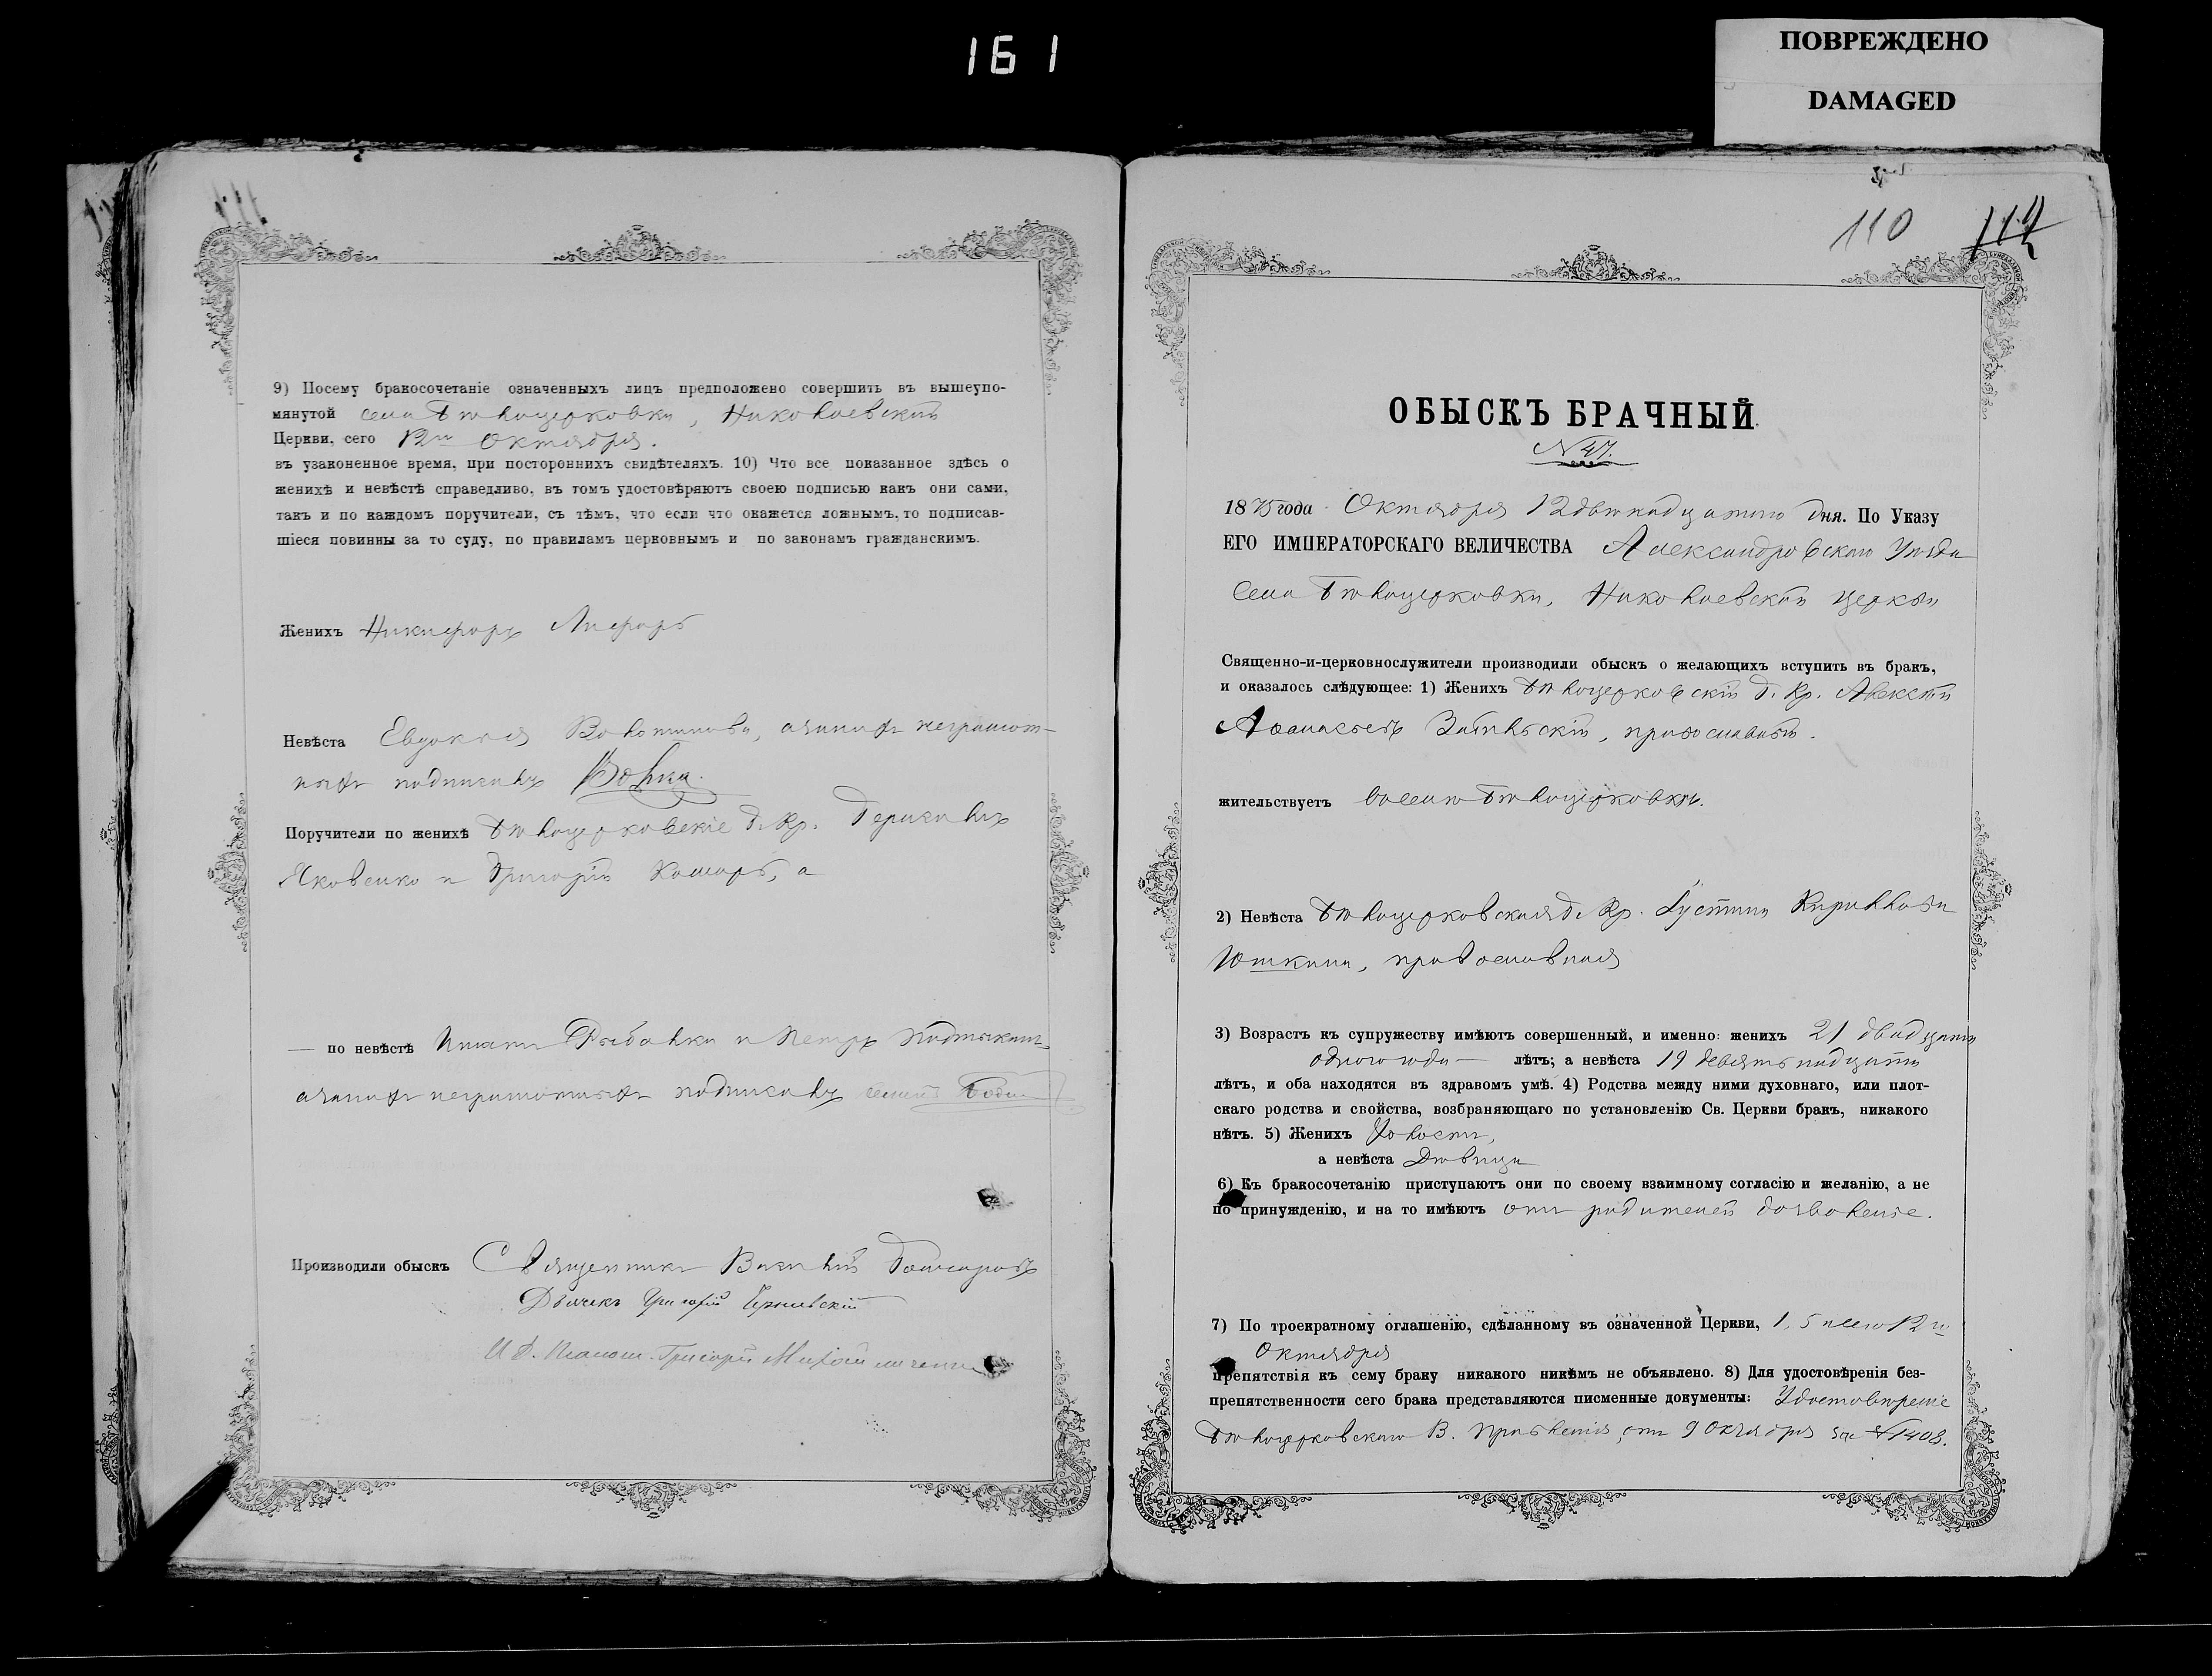 161
ПОВРЕЖДЕНО
DAMAGED
9) Посему бракосочетаніе означенныхъ лицъ предположено совершить въ вышеупо-
мянутой села Бѣлоцерковки, Николаевской
Церкви, сего 12го Октября.
въ узаконенное время, при постороннихъ свидѣтеляхъ. 10) Что все показанное здѣсь о
женихѣ и невѣстѣ справедливо, въ томъ удостовѣряютъ своею подписью какъ они сами,
такъ и по каждомъ поручители, съ тѣмъ, что если что окажется ложнымъ, то подписав-
шіеся повинны за то суду, по правиламъ церковнымъ и по законамъ гражданскимъ.
Женихъ Никифоръ
Невѣста Евдокія а за нихъ неграмот-
ныхъ подписалъ
Поручители по женихѣ Бѣлоцерковскіе Г. Кр. Герасимъ
Яковенко и Григорій Комаръ, а
— по невѣстѣ и Петръ
а за нихъ неграмотныхъ подписалъ
Производили обыскъ Священникъ Василій
Дьячекъ Григорій
И. д. Псалом. Григорій
110
ОБЫСКЪ БРАЧНЫЙ.
№ 47.
1875 года Октября 12 двѣнадцатого дня. По Указу
ЕГО ИМПЕРАТОРСКАГО ВЕЛИЧЕСТВА Александровского Уѣзда
Села Бѣлоцерковки, Николаевской церкви
Священно-и-церковнослужители производили обыскъ о желающихъ вступить въ бракъ,
и оказалось слѣдующее: 1) Женихъ Бѣлоцерковскій Г. Кр. Алексѣй
Аѳанасьевъ православный.
жительствуетъ въ селѣ Бѣлоцерковкѣ.
2) Невѣста Бѣлоцерковская Г. Кр. Іустина Кириллова
Юткина, православная
3) Возрастъ къ супружеству имѣютъ совершенный, и именно: женихъ 21 двадцати
одного года — лѣтъ; а невѣста 19 девятнадцати
лѣтъ, и оба находятся въ здравомъ умѣ. 4) Родства между ними духовнаго, или плот-
скаго родства и свойства, возбраняющаго по установленію Св. Церкви бракъ, никакого
нѣтъ. 5) Женихъ Холостъ,
а невѣста Дѣвица
6) Къ бракосочетанію приступаютъ они по своему взаимному согласію и желанію, а не
по принужденію, и на то имѣютъ отъ родителей дозволеніе.
7) По троекратному оглашенію, сдѣланному въ означенной Церкви, 1, 5 и сего 12го
Октября
препятствія къ сему браку никакого никѣмъ не объявлено. 8) Для удостовѣренія без-
препятственности сего брака представляются писменные документы: Удостовѣреніе
Бѣлоцерковскаго В. Правленія, отъ 9 Октября за № 1408.